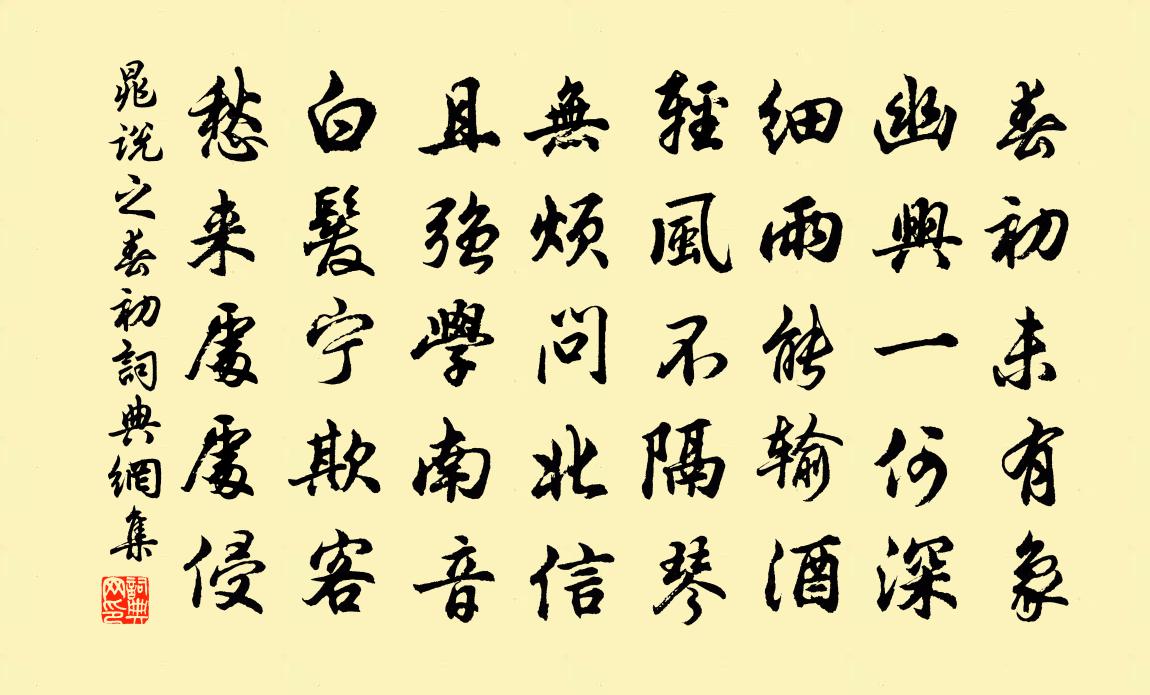 春初未有象
幽興一何深
細雨能输酒
輕風不隔琴
無煩問北信
且强學南音
白髮宁欺客
愁来處處侵
晁说之春初詞典網集
詞典網印